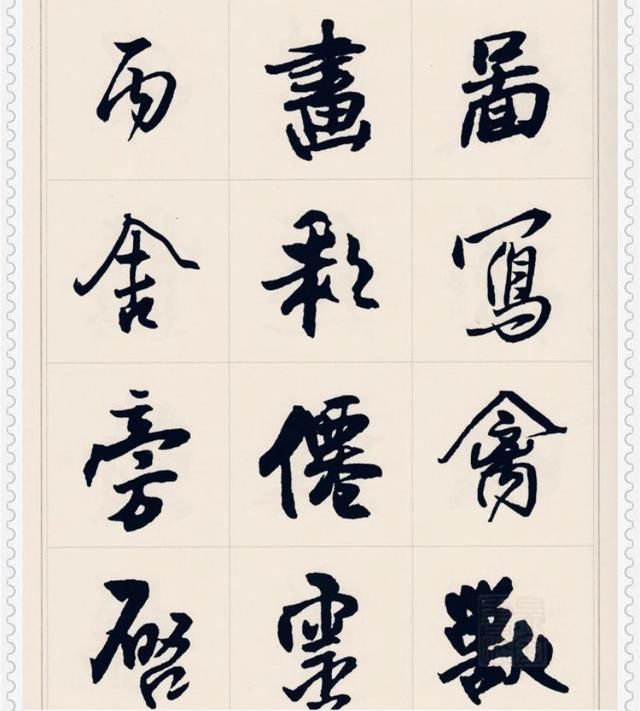 啚寫禽獸
畫彩僊靈
丙舍旁啓